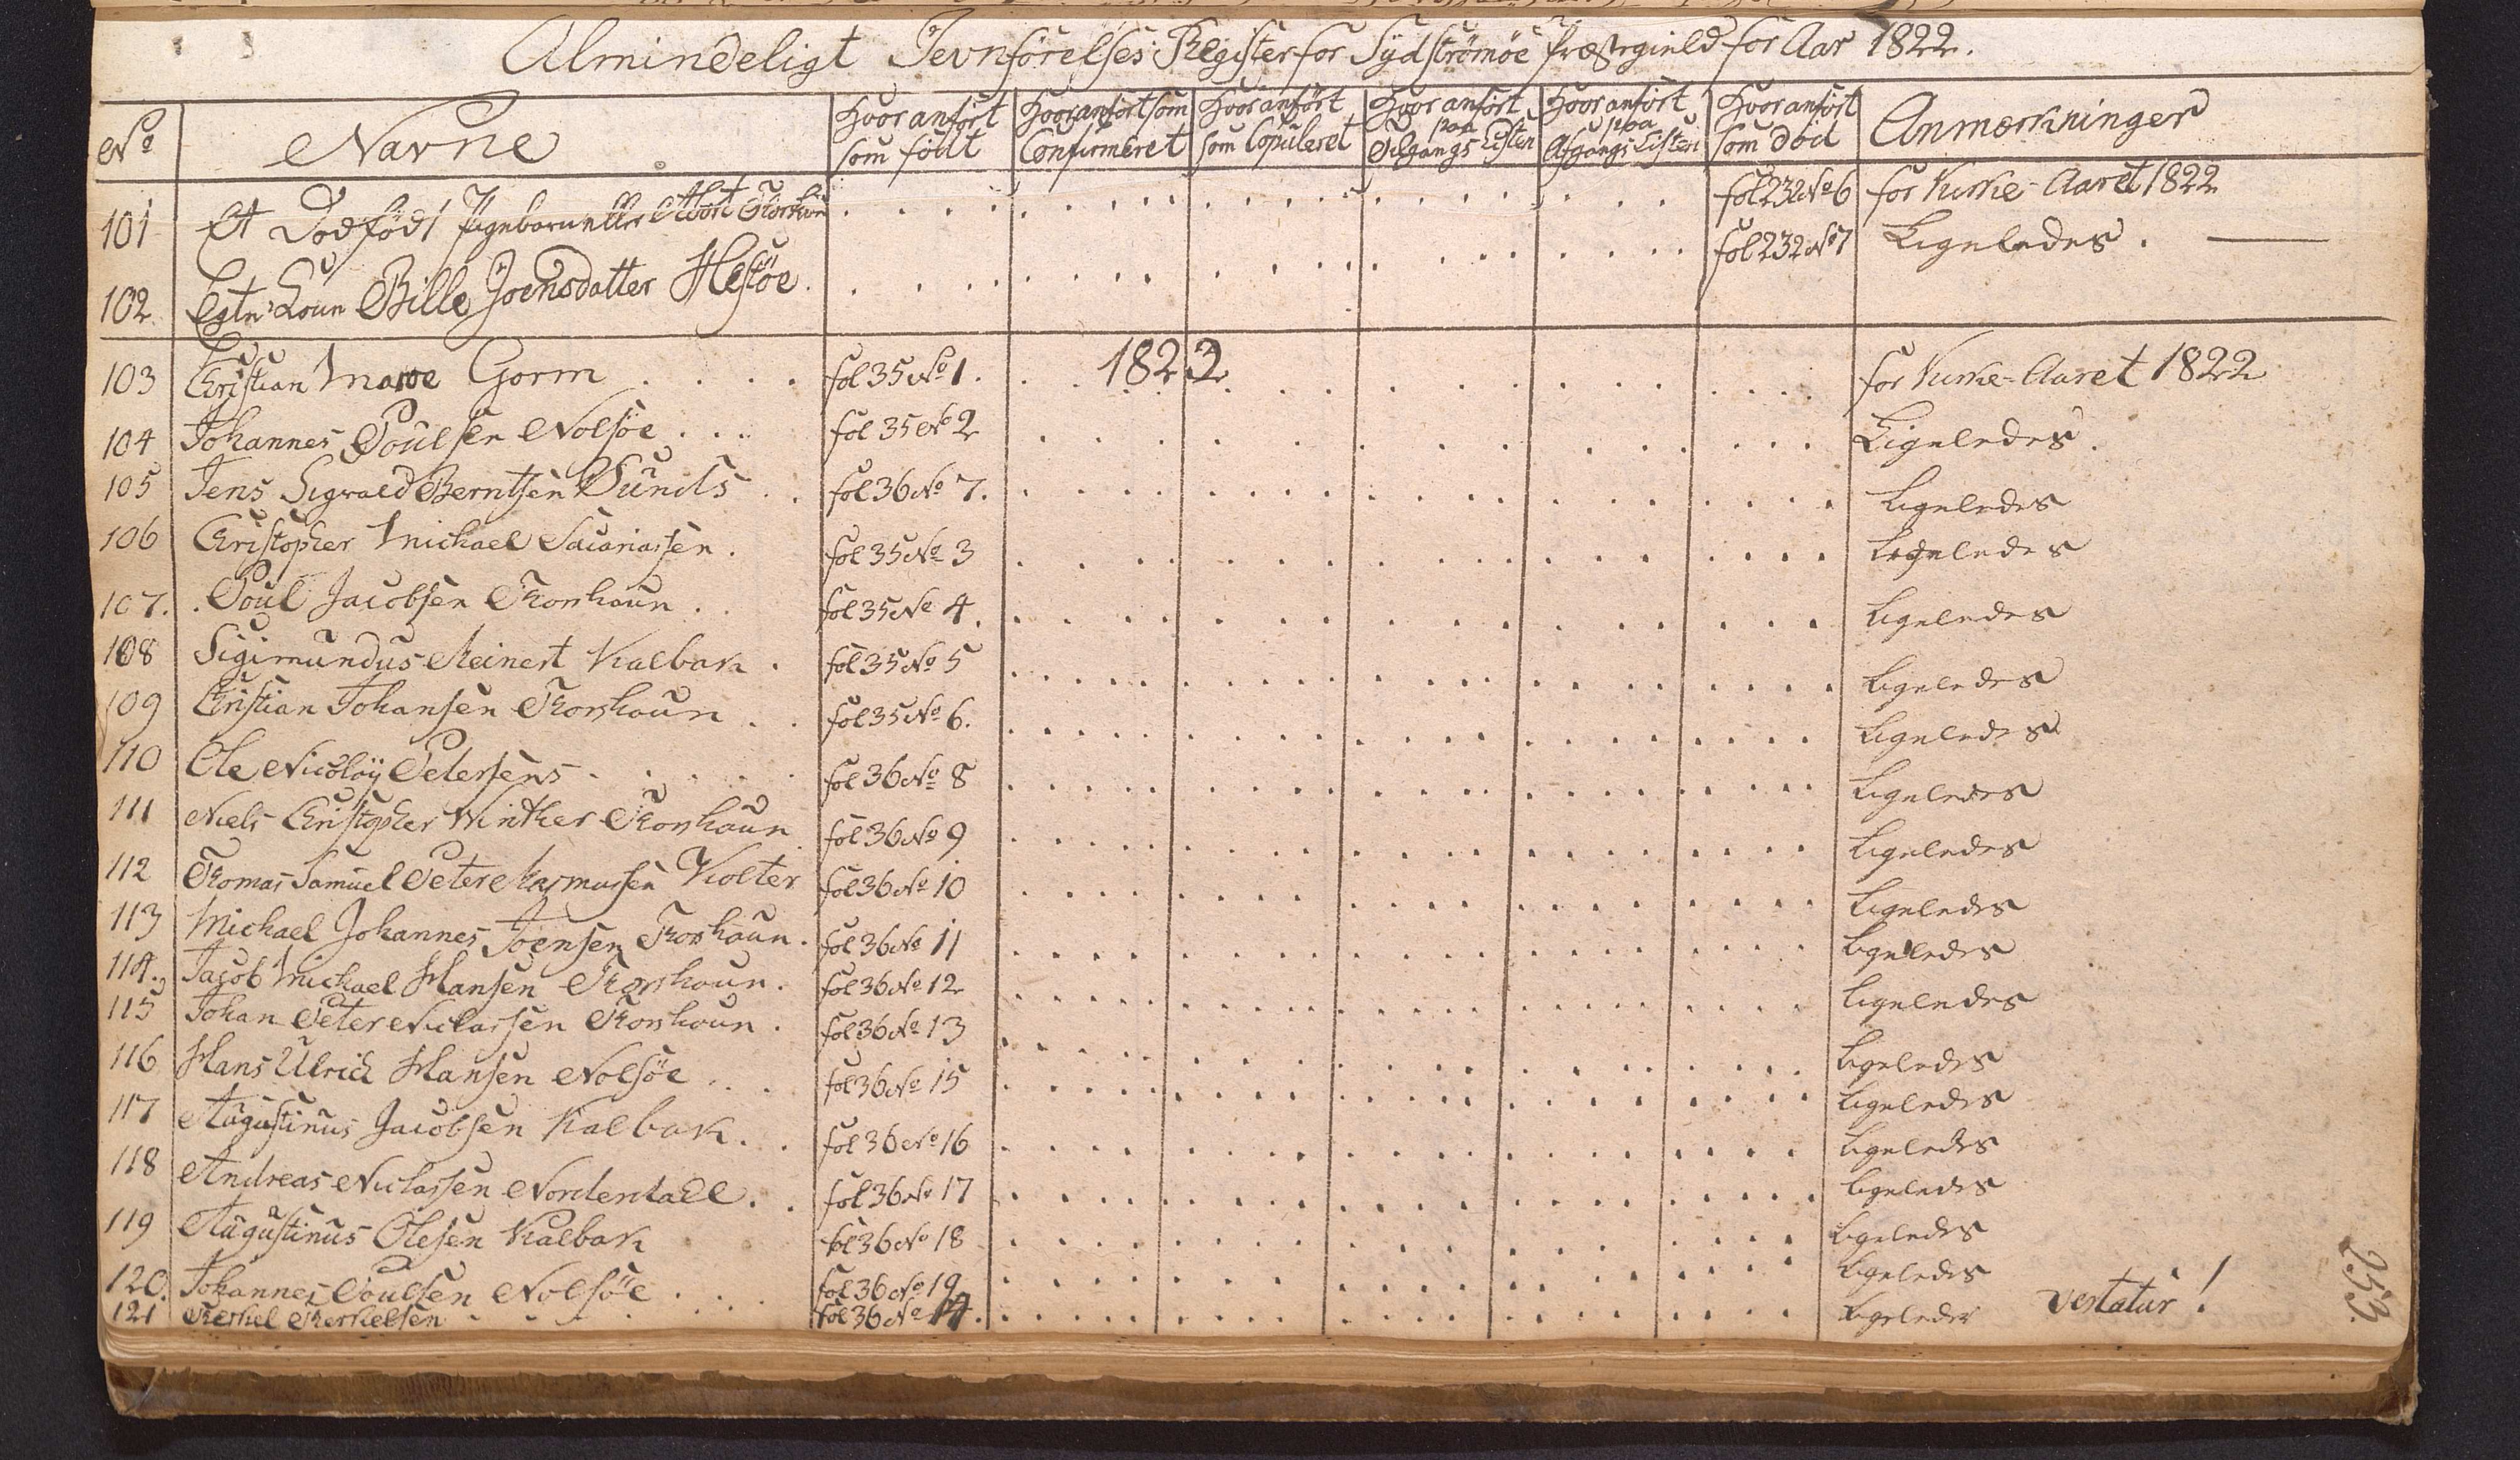 Almindeligt Jevnførelses-Register for Sydstrømøe Præstegield for Aar 1822.
No Navne Hvor anført som født Hvor anført som Confirmeret Hvor anført som Copuleret Hvor anført paa Tilgangs Listen Hvor anført paa Afgangs Listen Hvor anført som død Anmærkninger
101 Et Dødfødt Pigebarn fol 232 No 6 for Kirke-Aaret 1822
102 Bille Joensdatter Hestøe fol 232 No 7 Ligeledes.
1822
103 Christian Gorm fol 35 No 1. for Kirke-Aaret 1822
104 Johannes Poulsen Nolsöe fol 35 No 2 Ligeledes.
105 Jens Sigvald Berntsen Sunds fol 36 No 7. Ligeledes
106 Christopher Michael Sacariassen. fol 35 No 3 Ligeledes
107. Poul Jacobsen Thorshaun fol 35 No 4. Ligeledes
108 Sigimundus Reinert Kalbak fol 35 No 5 Ligeledes
109 Christian Johansen Thorshaun fol 35 No 6. Ligeledes
110 Ole Nicolay Petersens fol 36 No 8 Ligeledes
111 Niels Christopher Winther Thorshaun fol 36 No 9 Ligeledes
112 Thomas Samuel Peter Rasmussen Kolter fol 36 No 10 Ligeledes
113 Michael Johannes Joensen Thorshaun. fol 36 No 11 Ligeledes
114. Jacob Michael Hansen Thorshaun. fol 36 No 12 Ligeledes
115 Johan Peter Niclassen Thorshaun. fol 36 No 13 Ligeledes
116 Hans Ulrich Hansen Nolsöe fol 36 No 15 Ligeledes
117 Augustinus Jacobsen Kalbak. fol 36 No 16 Ligeledes
118 Andreas Niclassen Norderdahl. fol 36 No 17 Ligeledes
119 Augustinus Olesen Kalbak fol 36 No 18 Ligeledes
120. Johannes Poulsen Nolsöe fol 36 No 19 Ligeledes
121 fol 36 No 14. Ligeledes vertatur!
253.